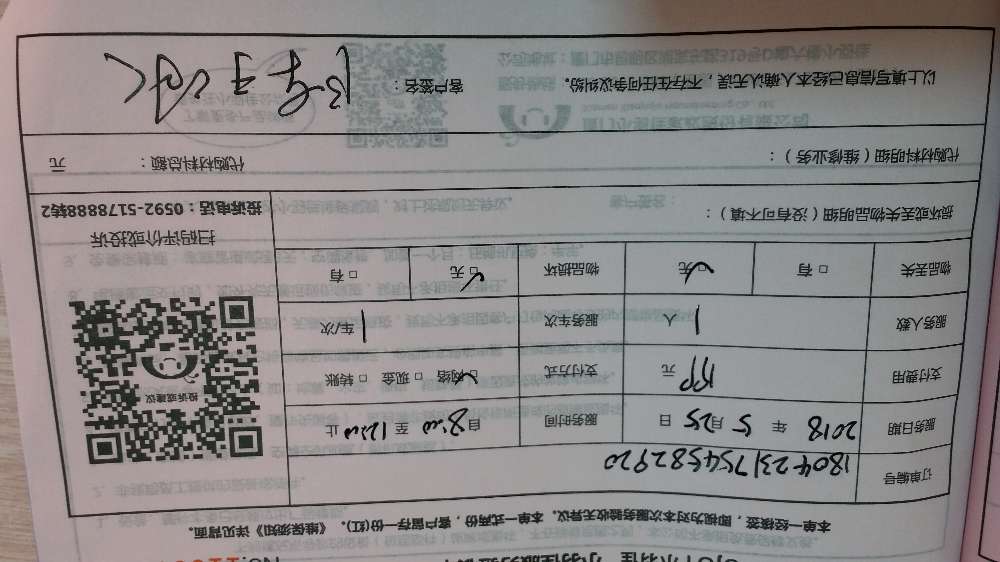 本单一经核签,即视为对本次服务验收无异议。本单一式两份,客户留存一份(红)。《维保须知》详见背面。
订单编号 180423175458292​0
服务日期 2018 年 5 月 25 日 服务时间 自 8:00 至 12:00 止
支付费用 元 支付方式 ☑网络 □ 现金 □ 转账
服务人数 1 人 服务车次 1 车/次
物品丢失 □ 有 ☑无 物品损坏 ☑无 □ 有
投诉或建议
扫码评价或投诉
投诉电话:0592-5178888转2
损坏或丢失物品明细(没有可不填):
代购材料明细(维修业务): 代购材料总额: 元
以上填写信息已经本人确认无误,不存在任何争议纠纷。 客户签名: